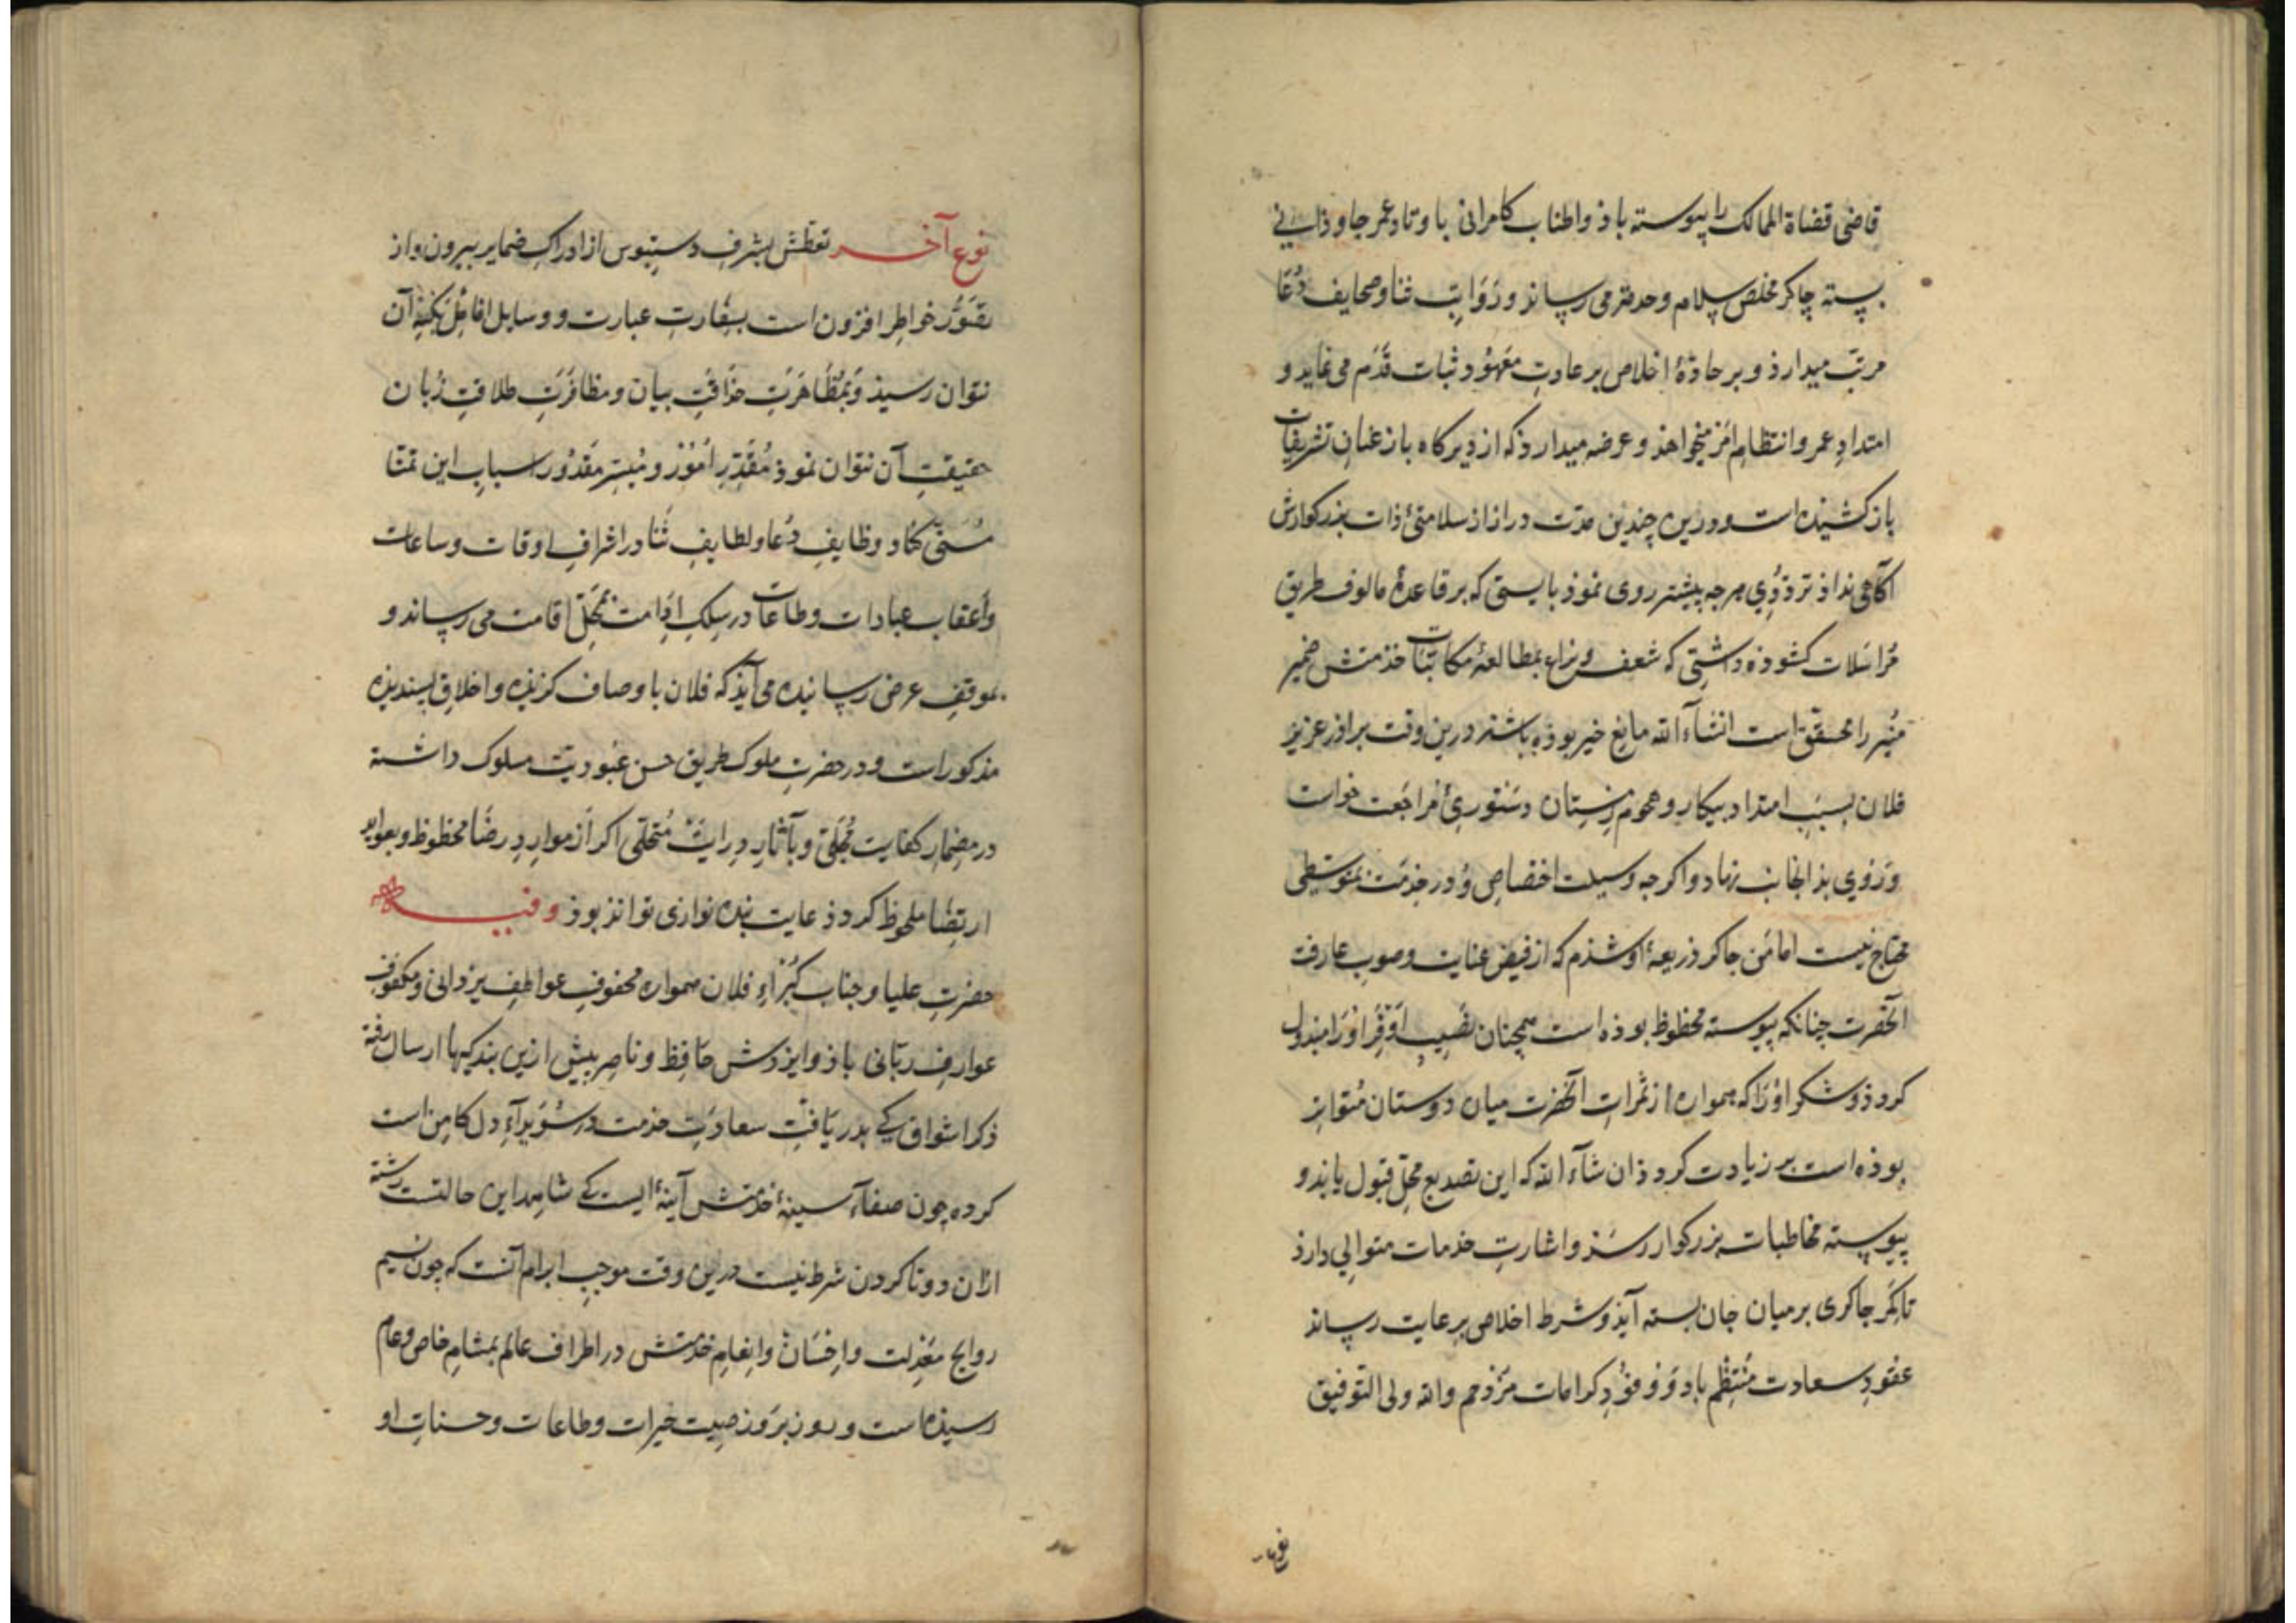 قاضی قضاة الممالک را پیوسته باذ و اطناب کامرانی باوتاد عمر جاوذانی
بسته چاکر مخلص سلام و خدمت می رساند و رواتب ثنا و صحایف دُعا
مرتب میدارذ و بر جادّهٔ اخلاص بر عادتِ معهُود ثبات قدَم می نماید و
امتدادِ عمر و انتظامِ امر میخواهذ و عرضه میدارذ که از دیرگاه باز عنانِ تشریفات
باز کشیذه است و درین چندین مدّت دراز از سلامتیٔ ذات بزرکوارش
آگاهی نداذ تردّدی هرچه بیشتر روی نموذ بایستی که بر قاعدهٔ مالوف طریق
مُراسَلات کشوذه داشتی که شعف بمطالعهٔ مکاتبات خدمتش ضمیر
منیر را محقق است انشآء الله مانع خیر بوذه باشد درین وقت براذر عزیز
فلان بسببِ امتداد بیکاری و هجوم زمستان دستوریٔ مراجَعت خواست
و رَوی بذانجانب نهاد و اگرچه وسیلت اختصاصِ وُ در خِدمَت بمتوسّطی
محتاج نیست اما مَن چاکر ذریعهٔ او شدم که از فیضِ عنایت و صوبِ عارفت
آنحضرت چنانکه پیوسته محظوظ بوذه است همچنان نصیبِ اَوفر اورا مبذول
کردد و شکر اورا که همواره از ثمراتِ آنحضرت میان دوستان متواتر
بوذه است بر زیادت کردد ان شآء الله که این تصدیع محلِّ قبول یابد و
پیوسته مخاطبات بزرکوار رسَد و اشارتِ خدمات متوالی دارذ
تا کمَرِ چاکری بر میان جان بسته آیذ و شرط اخلاص برعایت رساند
عقودِ سعادت مُنتظِم باد و وفُودِ کرامات مُزدحم والله ولی التوفیق
نوع آخر تعطّش بشرفِ دستبوس از ادراکِ ضمایر بیرون و از
تصَوُّر خواطِر افزون است بسِفارتِ عبارت و وسایل اقاتل بکنهِ آن
نتوان رسیذ و بمُظاهَرَتِ حذاقتِ بیان و مظافَرتِ طلاقتِ زبان
حقیقتِ آن نتوان نموذ مُقدِّرِ اُمُور و مُیسّرِ مقدُور اسبابِ این تمنّا
مُسَنّی کناد و وظایفِ دُعا و لطایفِ ثنا در اشرافِ اوقات و ساعات
و اَعقابِ عبادات و طاعات در سِلکِ ادامت بمحَلِّ اقامت می رساند و
بموقفِ عرض رسانیده می آیذ که فلان باوصاف کزیذه و اخلاقِ پسندیذه
مذکور است و در حضرتِ ملوک طریق حسنِ عُبودیّت مسلوک داشته
در مِضمارِ کفایت مُجلّی و بآثارِ دِرایَت مُتحلّی اگر از مواردِ رضا محظوظ و بعوایدِ
ارتضا ملحوظ کردد غایت بنده نوازی تواند بوذ و فیه
حضرتِ علیا و جناب کُبَرآءِ فلان همواره محفوفِ عواطفِ یزدانی و مکنوفِ
عوارفِ ربّانی باذ و ایزدش حافِظ و ناصِر پیش ازین بندکیها ارسال رفته
ذکر اشواق کی بدریافتِ سعادتِ خدمت در سُوَیدآءِ دل کامن است
کرده چون صفآءِ سینهٔ خذمتش آینهٔ ایست کی شاهد این حالتست رشته
ازان دوتا کردن شرط نیست درین وقت موجبِ ابرام آنست که چون نسیم
روایح مَعْدِلت و اِحسَان و اِنعامِ خدمتش در اطراف عالم بمشامِ خاص و عام
رسیذه است و روز بروز صیت خیرات و طاعات و حسناتِ او